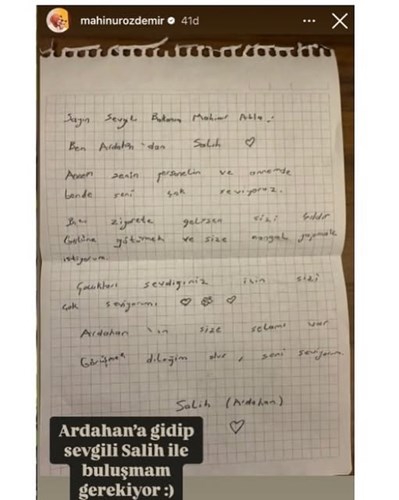 mahinurozdemir 41d
Sayın Sevgili Bakanım Mahinur Abla
Ben Ardahan'dan Salih ♡
Annem senin personelin ve annemde
bende seni çok seviyoruz.
Beni ziyarete gelirsen sizi Çıldır
Gölüne götürmek ve size mangal yapmak
istiyorum
Çocukları sevdiğiniz için sizi
çok seviyorum ♡ ♡
Ardahan'ın size selamı var
Görüşmek dileğim olur, seni seviyorum
Salih (Ardahan)
♡
Ardahan'a gidip
sevgili Salih ile
buluşmam
gerekiyor :)